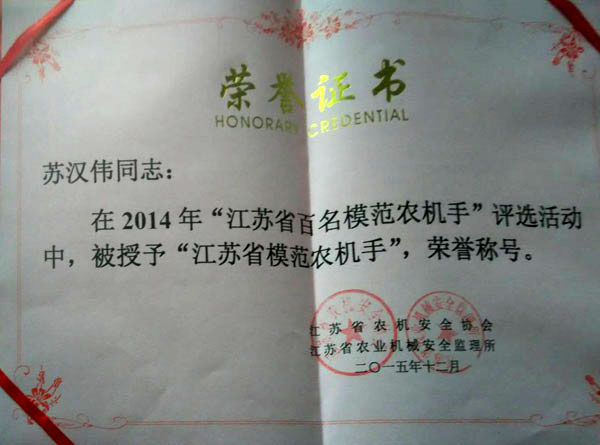 荣誉证书
HONORARY CREDENTIAL
苏汉伟同志：
在2014年“江苏省百名模范农机手”评选活动
中，被授予“江苏省模范农机手”，荣誉称号。
江苏省农机安全协会
江苏省农业机械安全监理所
二〇一五年十二月